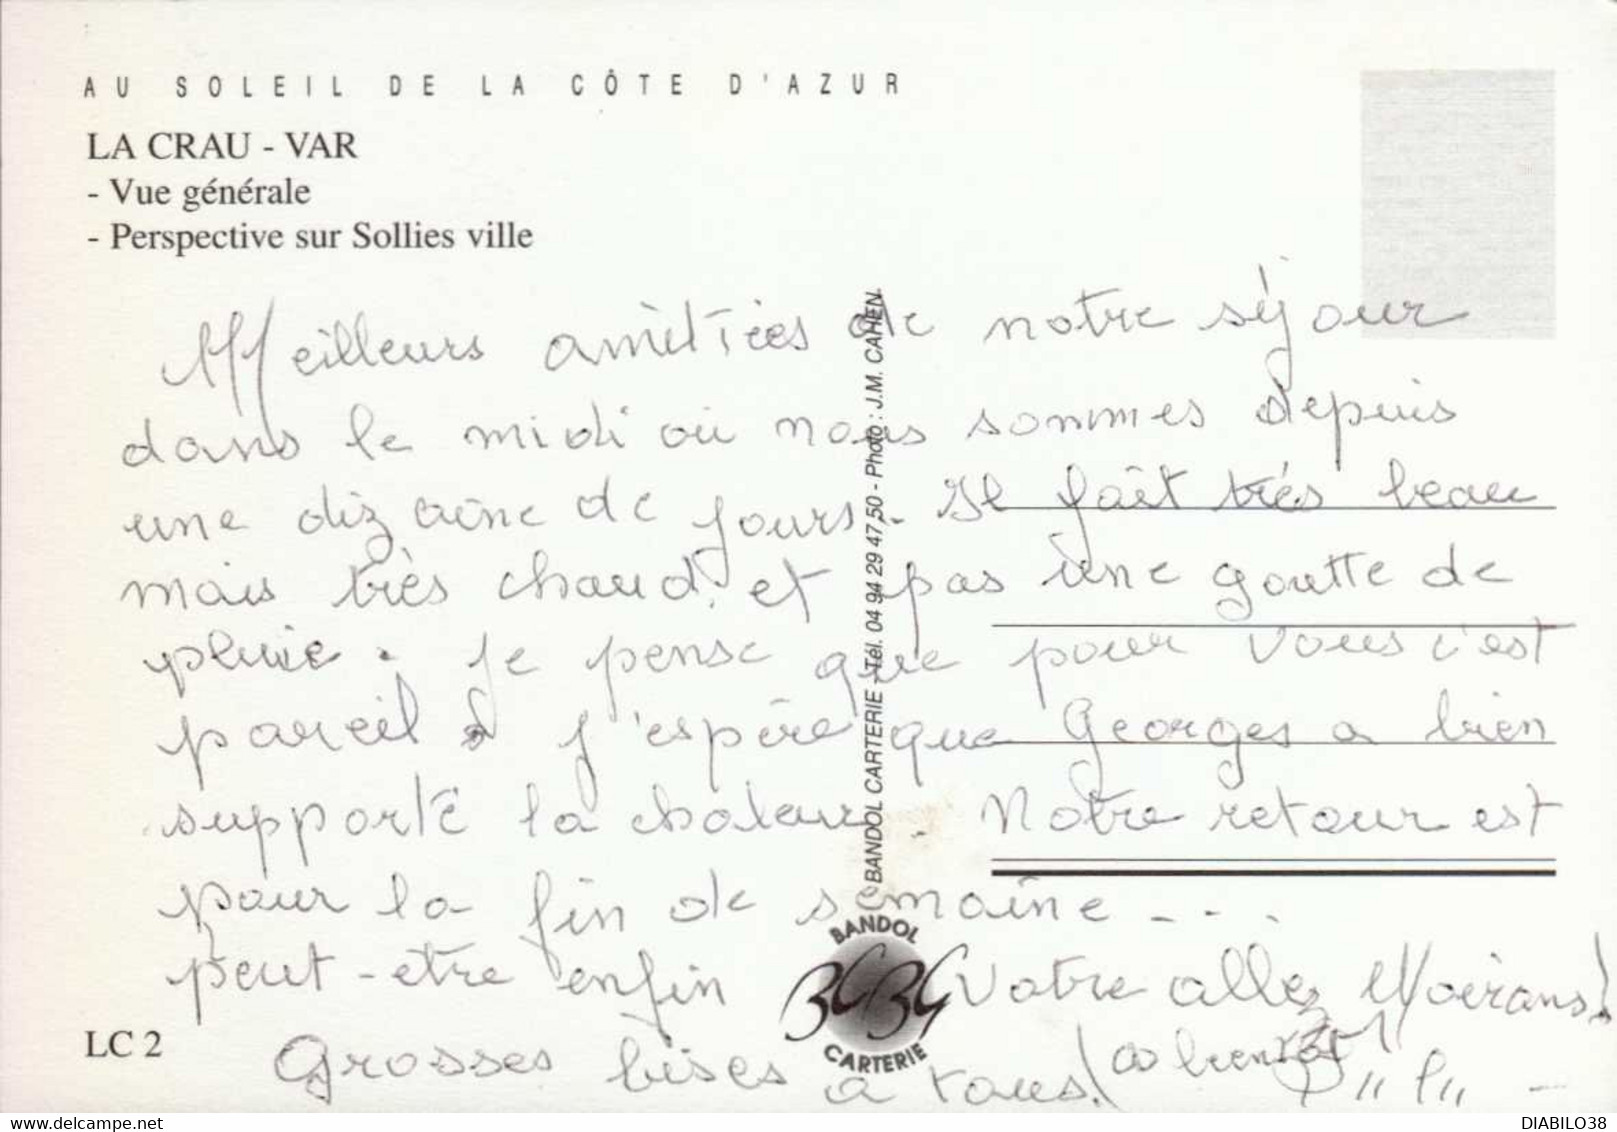 AU SOLEIL DE LA CÔTE D'AZUR
LA CRAU - VAR
- Vue générale
- Perspective sur Sollies ville
Meilleurs amitiées de notre séjour
dans le midi où nous sommes depuis
une dizaine de jours. Il fait très beau
mais très chaud, et pas une goutte de
pluie. je pense que pour vous c'est
pareil j'espère que Georges a bien
supporté la chaleur. Notre retour est
pour la fin de semaine - - .
peut-etre enfin votre allez Moirans!
Grosses bises a tous!
a bientot
BANDOL CARTERIE - Tél. 04 94 29 47 50 - Photo : J.M. CAHEN
BANDOL
BCBG
CARTERIE
LC 2
delcampe.net
DIABILO38